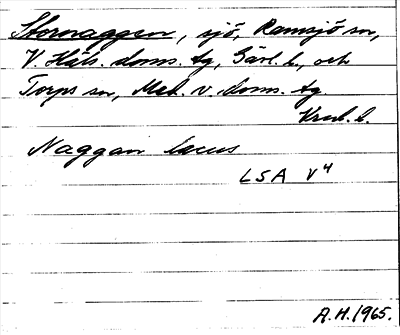 Stornaggen, sjö, Ramsjö sn,
V. Häls. doms. tg, Gävl. l., och
Torps sn, Med. v. doms. tg
Vnrl. l.
Naggan lacus
LSA V4
A.H. 1965.